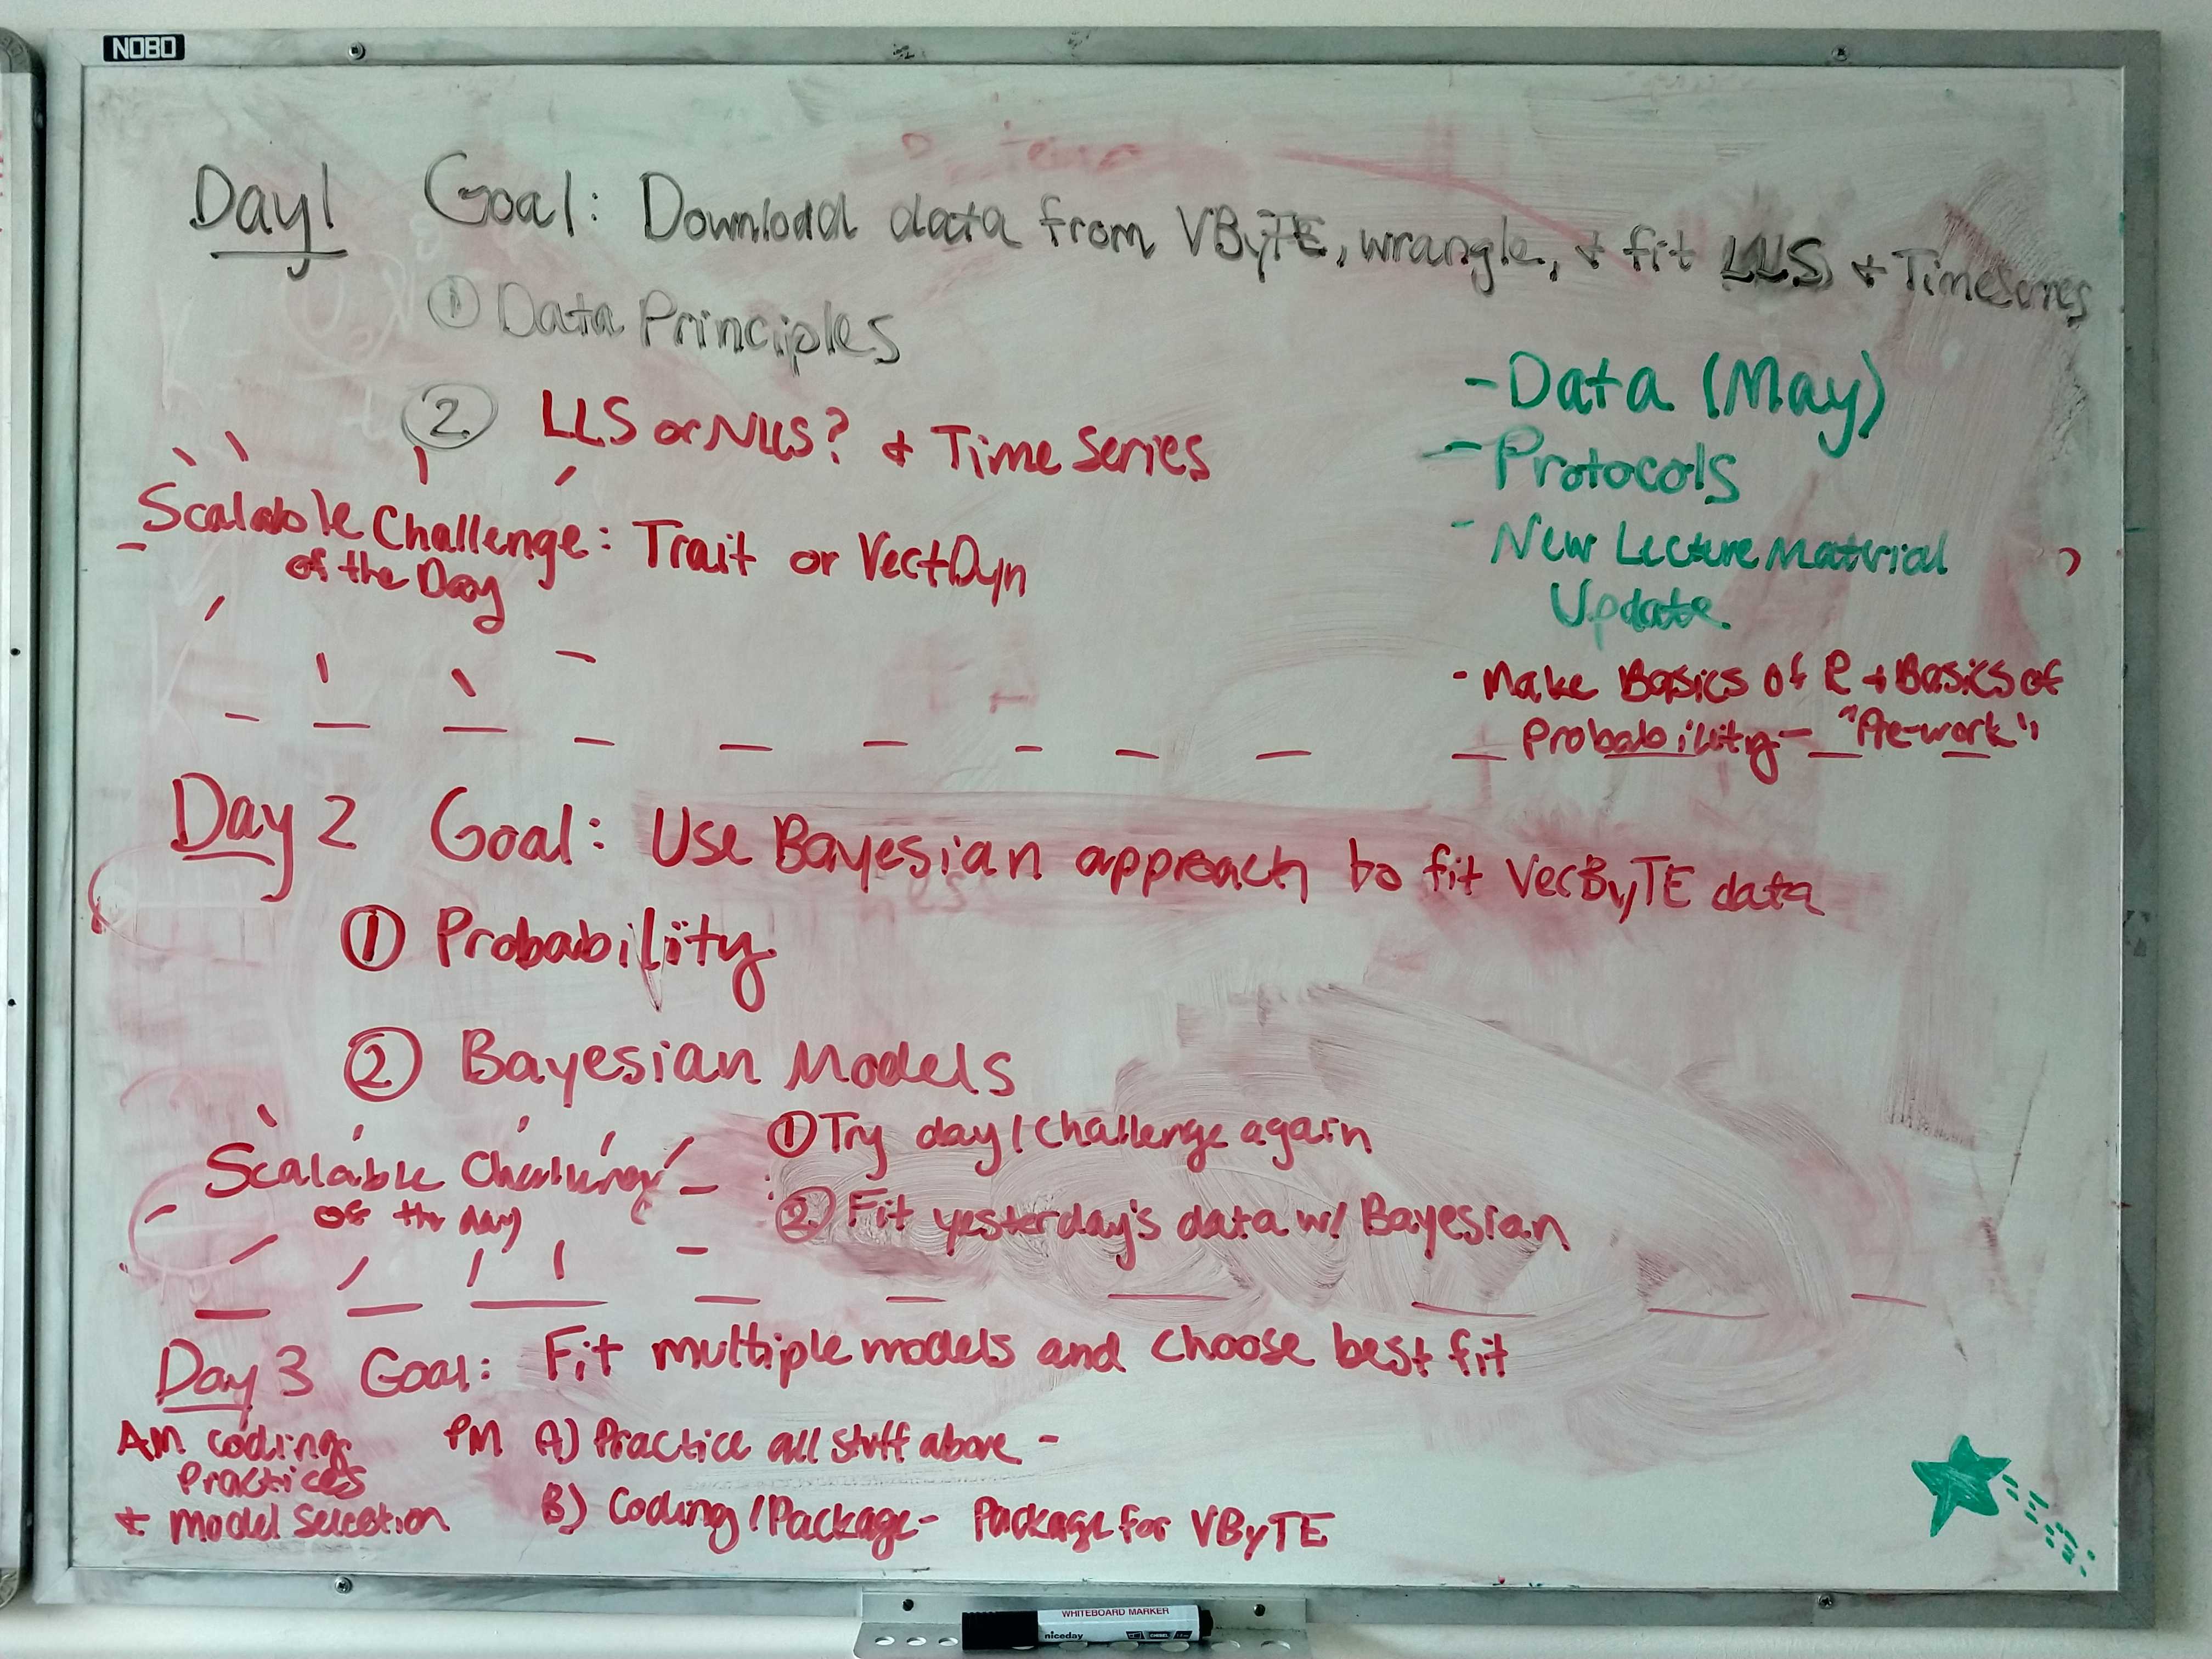 NOBO
Day 1 Goal: Download data from VByTE, wrangle, + fit LLS + TimeSeries
① Data Principles
② LLS or NLLS? + Time Series
Scalable Challenge: Trait or VectDyn
of the Day
- Data (May)
- Protocols
- New Lecture Material
Update
- Make Basics of R + Basics of
Probability - "Pre-work"
Day 2 Goal: Use Bayesian approach to fit VecByTE data
① Probability
② Bayesian Models
Scalable Challenge
of the day
: ① Try day 1 challenge again
② Fit yesterday's data w/ Bayesian
Day 3 Goal: Fit multiple models and choose best fit
AM coding
practices
+ model selection
PM A) Practice all stuff above -
B) Coding/Package - Package for VByTE
WHITEBOARD MARKER
niceday